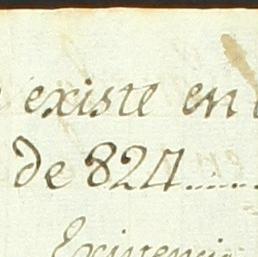 existe en
de 824......
Existencia